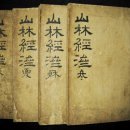 山林經濟 冬
山林經濟 秋
山林經濟 夏